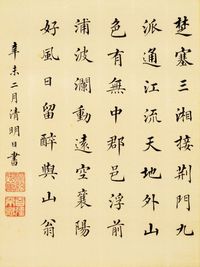 楚塞三湘接荊門九
派通江流天地外山
色有無中郡邑浮前
浦波瀾動遠空襄陽
好風日留醉與山翁
辛未二月清明日書